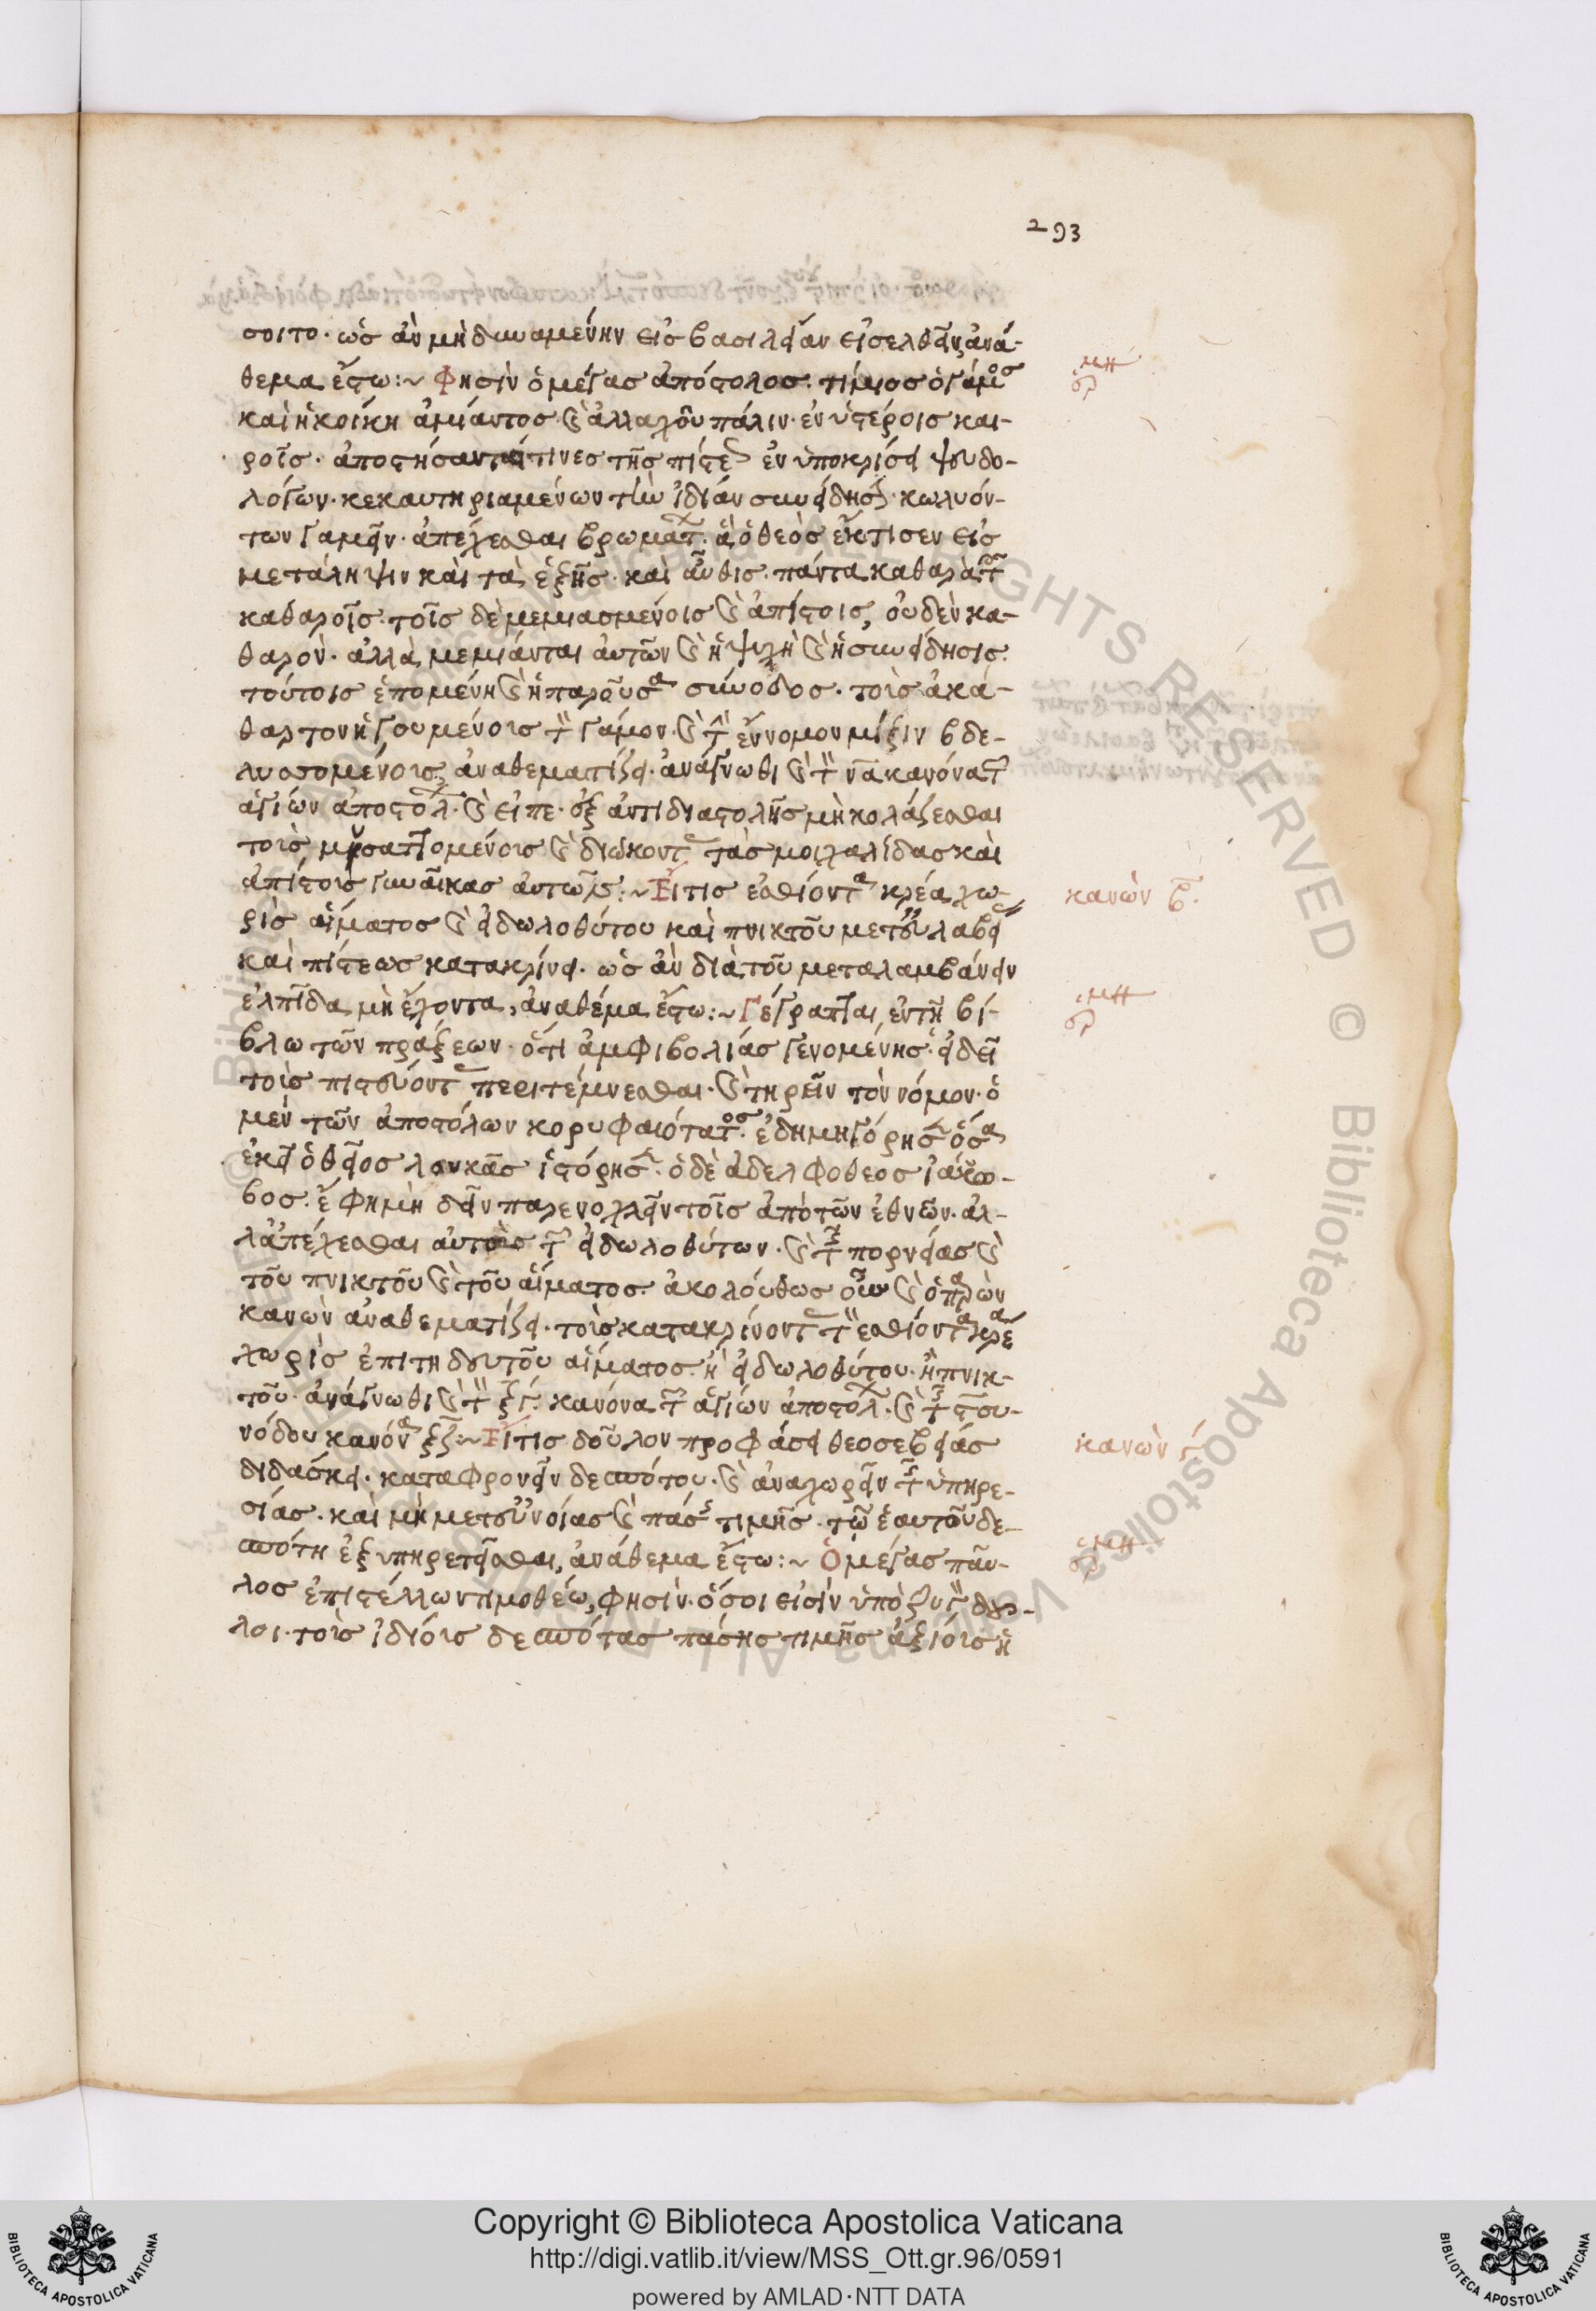 293
σοιτο· ὡς ἂν μὴ δυναμένην εἰς βασιλείαν εἰσελθεῖν, ἀνά-
θεμα ἔστω:~ Φησὶν ὁ μέγας ἀπόστολος· τίμιος ὁ γάμος
καὶ ἡ κοίτη ἀμίαντος· καὶ ἀλλαχοῦ πάλιν· ἐν ὑστέροις και-
ροῖς· ἀποστήσονταί τινες τῆς πίστεως ἐν ὑποκρίσει ψευδο-
λόγων· κεκαυτηριαμένων τὴν ἰδίαν συνείδησιν· κωλυόν-
των γαμεῖν· ἀπέχεσθαι βρωμάτων· ἃ ὁ θεὸς ἔκτισεν εἰς
μετάληψιν καὶ τὰ ἑξῆς· καὶ αὖθις· πάντα καθαρὰ τοῖς
καθαροῖς· τοῖς δὲ μεμιασμένοις καὶ ἀπίστοις, οὐδὲν κα-
θαρόν· ἀλλὰ μεμίανται αὐτῶν καὶ ἡ ψυχὴ καὶ ἡ συνείδησις·
τούτοις ἑπομένη καὶ ἡ παροῦσα σύνοδος· τοὺς ἀκά-
θαρτον ἡγουμένους τὸν γάμον· καὶ τὴν ἔννομον μίξιν βδε-
λυσσομένους, ἀναθεματίζει· ἀνάγνωθι καὶ τὸν να κανόνα τῶν
ἁγίων ἀποστόλων· καὶ εἰπὲ· ἐξ ἀντιδιαστολῆς μὴ κολάζεσθαι
τοὺς μυσαττομένους καὶ διώκοντας τὰς μοιχαλίδας καὶ
ἀπίστους γυναῖκας αὐτῶν:~ Εἴ τις ἐσθίοντα κρέα χω-
ρὶς αἵματος καὶ εἰδωλοθύτου καὶ πνικτοῦ μετ' εὐλαβεί
καὶ πίστεως κατακρίνει· ὡς ἂν διὰ τοῦ μεταλαμβάνειν
ἐλπίδα μὴ ἔχοντα, ἀνάθεμα ἔστω:~ Γέγραπται ἐν τῇ βί-
βλω τῶν πράξεων· ὅτι ἀμφιβολίας γενομένης· εἰ δεῖ
τοὺς πιστεύοντας περιτέμνεσθαι· καὶ τηρεῖν τὸν νόμον· ὁ
μὲν τῶν ἀποστόλων κορυφαιότατος· ἐδημηγόρησεν ὅσα
ἐκεῖ ὁ θεῖος λουκᾶς ἱστόρησεν· ὁ δὲ ἀδελφόθεος ἰάκω-
βος· ἔφη μὴ δεῖν παρενοχλεῖν τοῖς ἀπὸ τῶν ἐθνῶν· ἀλ-
λ' ἀπέχεσθαι αὐτοὺς τῶν εἰδωλοθύτων· καὶ τῆς πορνείας καὶ
τοῦ πνικτοῦ καὶ τοῦ αἵματος· ἀκολούθως οὖν καὶ ὁ παρὼν
κανὼν ἀναθεματίζει· τοὺς κατακρίνοντας τὸν ἐσθίοντα κρέα
χωρὶς ἐπιτηδευτοῦ αἵματος· ἢ εἰδωλοθύτου· ἢ πνικ-
τοῦ· ἀνάγνωθι καὶ τὸν ξγ κανόνα τῶν ἁγίων ἀποστόλων· καὶ τῆς ϛ συ-
νόδου κανόνα ξζ:~ Εἴ τις δοῦλον προφάσει θεοσεβείας
διδάσκει· καταφρονεῖν δεσπότου· καὶ ἀναχωρεῖν τῆς ὑπηρε-
σίας· καὶ μὴ μετ' εὐνοίας καὶ πάσης τιμῆς· τῶ ἑαυτοῦ δε-
σπότη ἐξυπηρετεῖσθαι, ἀνάθεμα ἔστω:~ Ὁ μέγας παῦ-
λος ἐπιστέλλων τιμοθέω, φησίν· ὅσοι εἰσὶν ὑπὸ ζυγὸν δοῦ-
λοι· τοὺς ἰδίους δεσπότας πάσης τιμῆς ἀξίους ἡ
ἑρμη
κανὼν β.
ἑρμη
κανὼν γ
ἑρμη
Copyright © Biblioteca Apostolica Vaticana
http://digi.vatlib.it/view/MSS_Ott.gr.96/0591
powered by AMLAD·NTT DATA
BIBLIOTECA APOSTOLICA VATICANA
BIBLIOTECA APOSTOLICA VATICANA